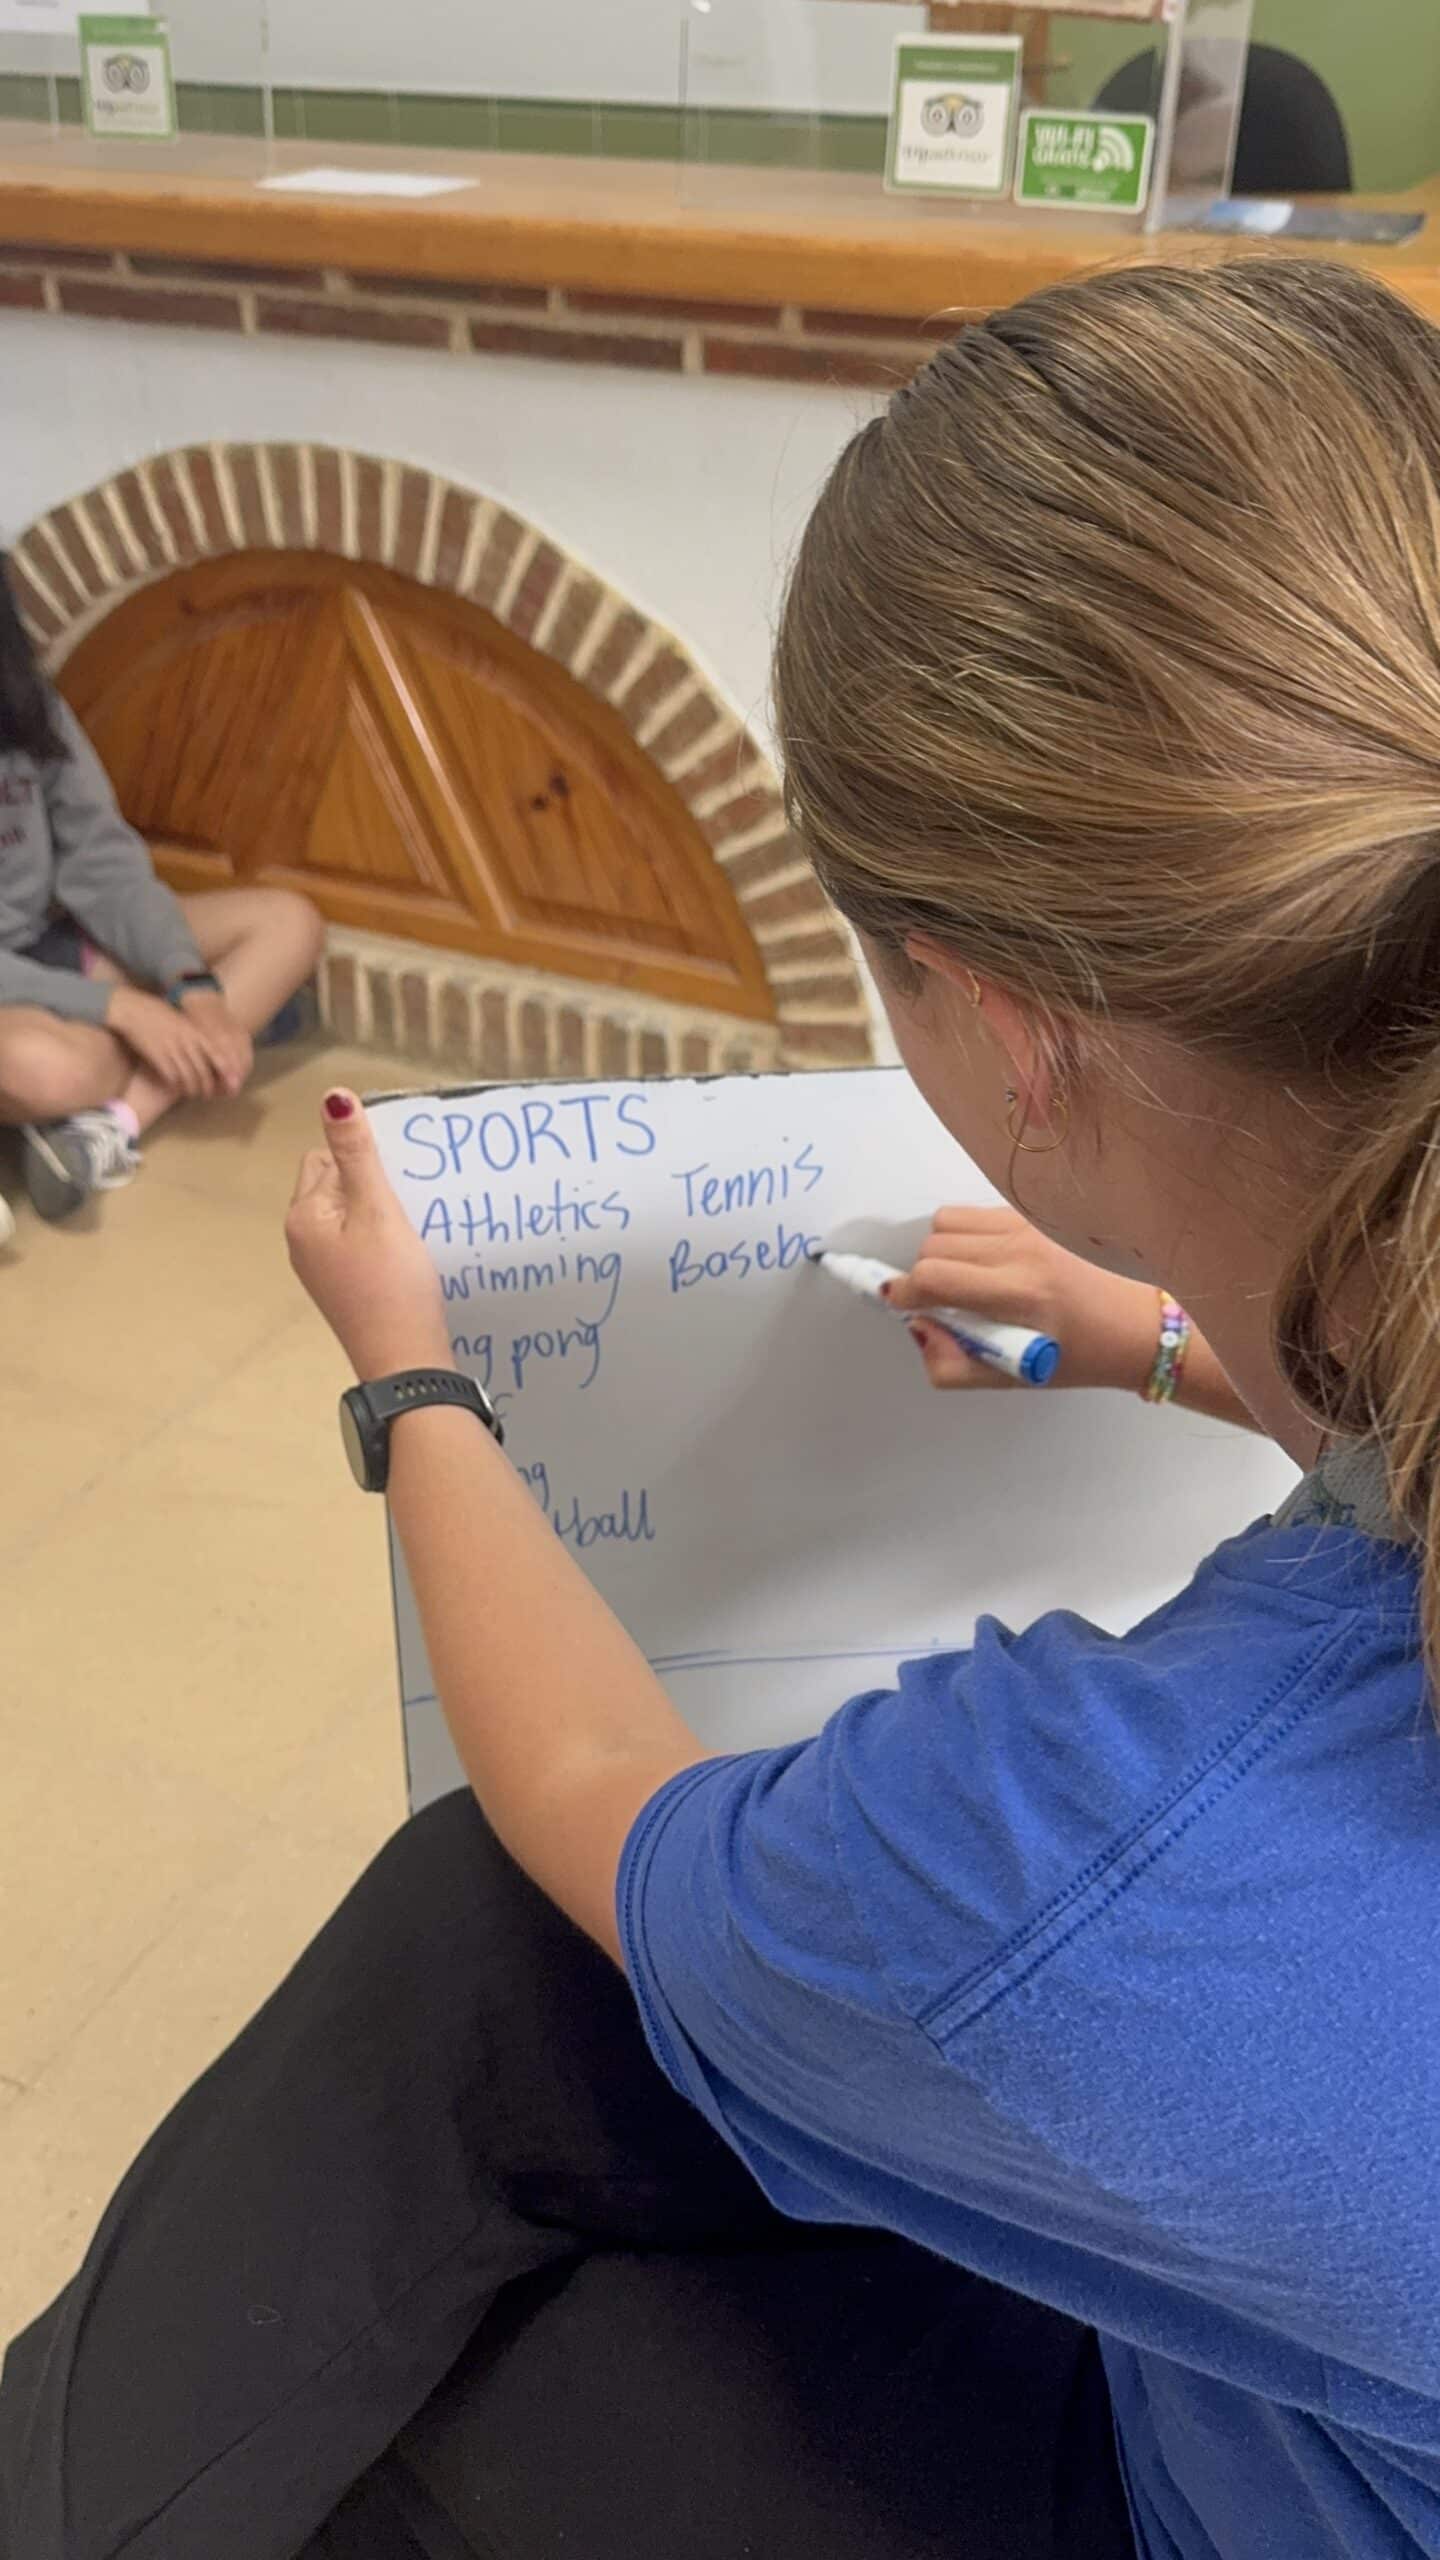 tripadvisor
tripadvisor
WI-FI
GRATIS
SPORTS
Athletics Tennis
wimming Baseba
ng pong
f
ng
tball